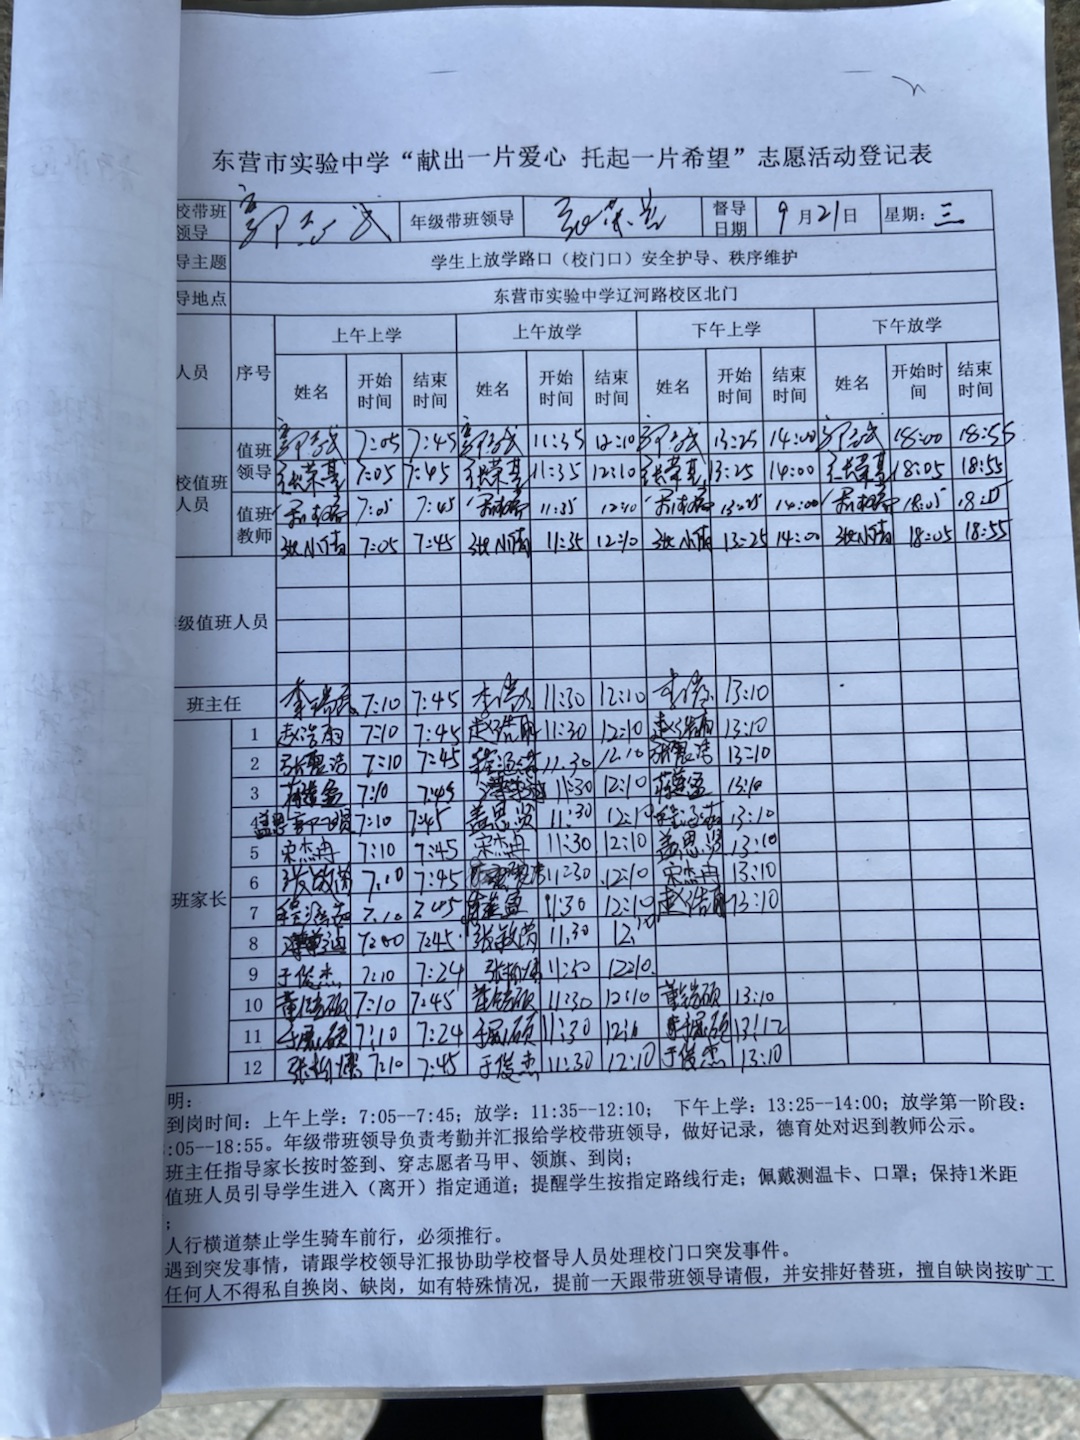 东营市实验中学“献出一片爱心 托起一片希望”志愿活动登记表
校带班领导 年级带班领导 督导日期 9月21日 星期：三
导主题 学生上放学路口（校门口）安全护导、秩序维护
导地点 东营市实验中学辽河路校区北门
人员 序号 上午上学 上午放学 下午上学 下午放学
姓名 开始时间 结束时间 姓名 开始时间 结束时间 姓名 开始时间 结束时间 姓名 开始时间 结束时间
校值班人员 值班领导 7:05 7:45 11:35 12:10 13:25 14:00 18:00 18:55
张荣基 7:05 7:45 张荣基 11:35 12:10 张荣基 13:25 14:00 张荣基 18:05 18:55
值班教师 7:05 7:45 11:35 12:10 13:25 14:00 18:05
张小倩 7:05 7:45 张小倩 11:35 12:10 张小倩 13:25 14:00 张小倩 18:05 18:55
级值班人员
班主任 7:10 7:45 11:30 12:10 13:10
班家长
1 赵浩雨 7:10 7:45 11:30 12:10 13:10
2 7:10 7:45 11.30 12.10 13:10
3 7:10 7:45 11:30 12:10 13:10
4 7:10 7:45 盖思贤 11:30 12:10 13:10
5 宋杰冉 7:10 7:45 宋杰冉 11:30 12:10 盖思贤 13:10
6 张敏茜 7.10 7:45 11:30 12:10 宋杰冉 13:10
7 7.10 7:45 11:30 12:10 13:10
8 7:00 7:45 张敏茜 11.30 12.10
9 于俊杰 7:10 7:24 11:30 12:10.
10 7:10 7:45 11:30 12:10 13:10
11 7:10 7:24 11:30 13:12
12 7:10 7:45 于俊杰 11:30 12:10 于俊杰 13:10
明：
到岗时间：上午上学：7:05--7:45；放学：11:35--12:10； 下午上学：13:25--14:00；放学第一阶段：
:05--18:55。年级带班领导负责考勤并汇报给学校带班领导，做好记录，德育处对迟到教师公示。
班主任指导家长按时签到、穿志愿者马甲、领旗、到岗；
值班人员引导学生进入（离开）指定通道；提醒学生按指定路线行走；佩戴测温卡、口罩；保持1米距
；
人行横道禁止学生骑车前行，必须推行。
遇到突发事情，请跟学校领导汇报协助学校督导人员处理校门口突发事件。
任何人不得私自换岗、缺岗，如有特殊情况，提前一天跟带班领导请假，并安排好替班，擅自缺岗按旷工